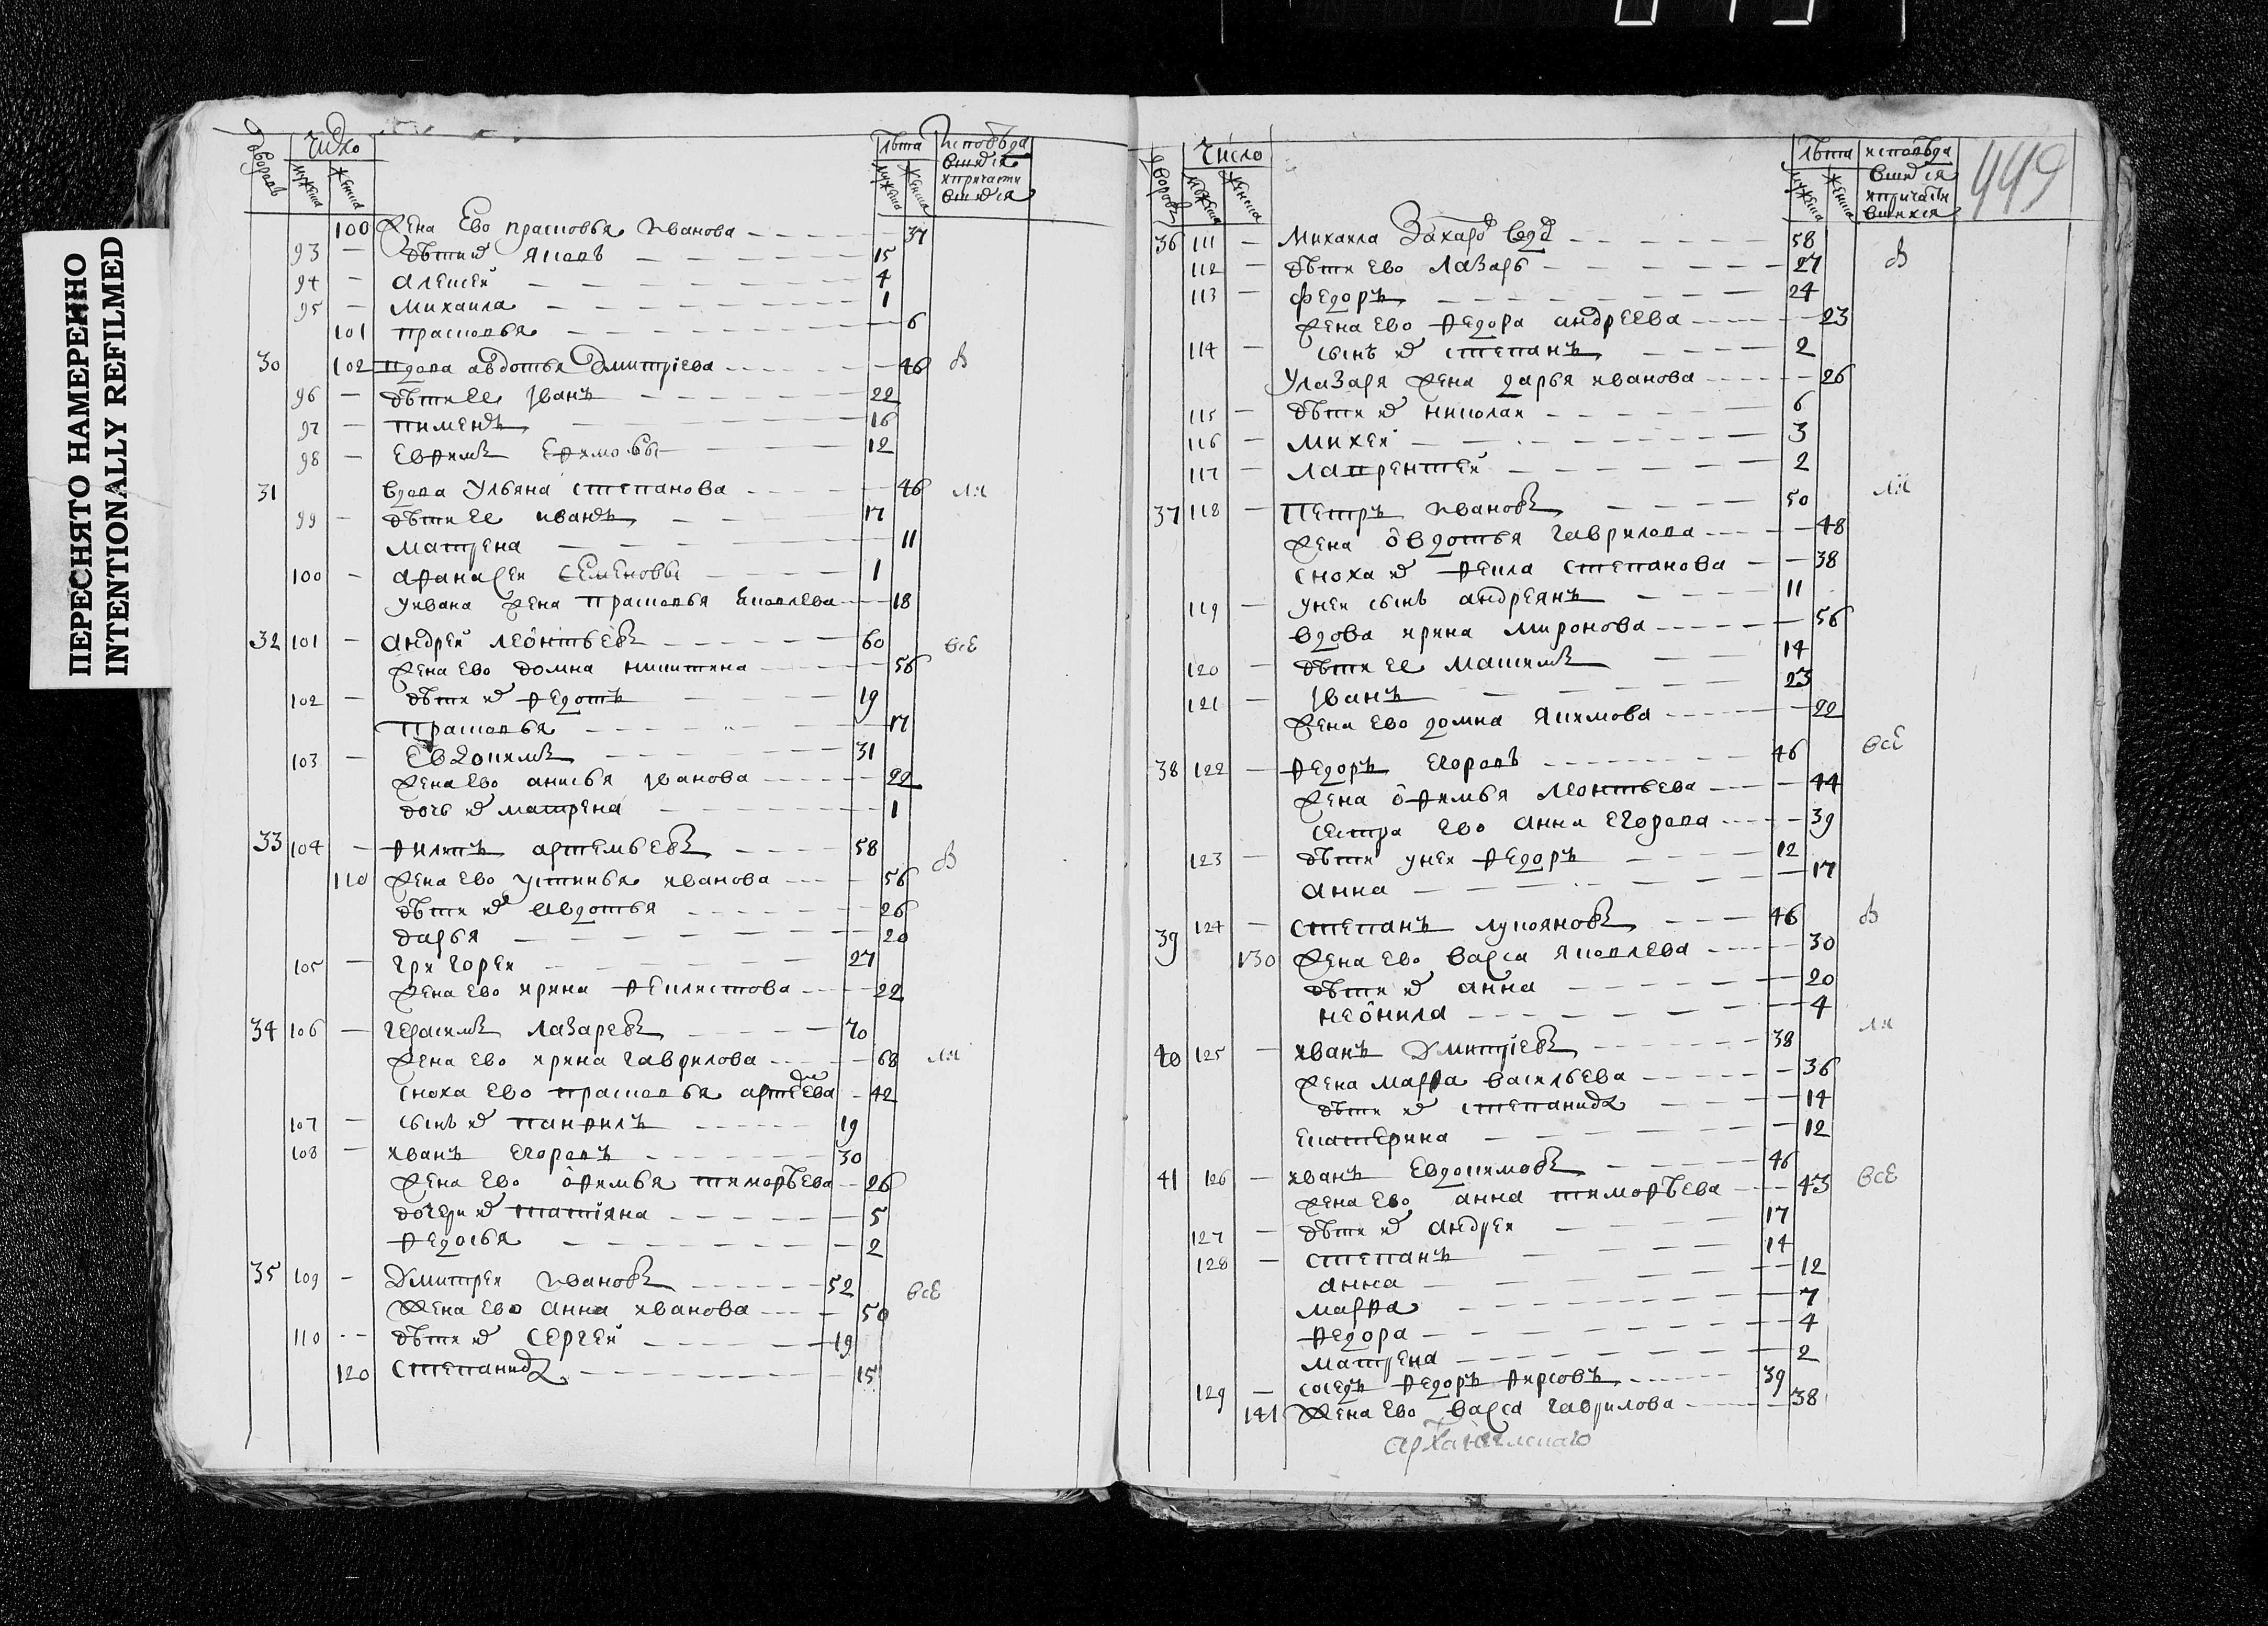 ПЕРЕСНЯТО НАМЕРЕННО
INTENTIONALLY REFILMED
дворовъ
число
мужеска
женска
лѣта
мужеска
женска
исповѣда
вшиися
и причасти
вшиися
100 жена ево прасковья иванова 37
93 дѣти их яковъ 15
94 алексеи 4
95 михаила 1
101 прасковья 6
30 102 вдова авдотья дмитріева 46 в
96 дѣти ее іванъ 22
97 пименъ 16
98 евфимъ ефимовы 12
31 вдова ульяна степанова 46 ли
99 дѣти ее иванъ 17
матрена 11
100 афанасеи семеновы 1
у ивана жена прасковья яковлева 18
32 101 андреи леонтьевъ 60 все
жена ево домна никитина 56
102 дѣти их федотъ 19
прасковья 17
103 евдокимъ 31
жена ево анисья іванова 22
дочь их матрена 1
33 104 филипъ артемьевъ 58 в
110 жена ево устинья иванова 56
дѣти их авдотья 26
дарья 20
105 григореи 27
жена ево ирина феклистова 22
34 106 герасимъ лазаревъ 70
жена ево ирина гаврилова 68 ли
сноха ево прасковья 42
107 сынъ их панфилъ 19
108 иванъ егоровъ 30
жена ево офимья тимофѣева 26
дочери их татіяна 5
федосья 2
35 109 дмитреи ивановъ 52 все
жена ево анна иванова 50
110 дѣти их сергеи 19
120 степанида 15
449
дворовъ
число
мужеска
женска
лѣта
мужеска
женска
исповѣда
вшиися
и причасти
вшихся
36 111 михаила захаро 58 в
112 дѣти ево лазарь 27
113 федоръ 24
жена ево федора андреева 23
114 сынъ их степанъ 2
у лазаря жена дарья иванова 26
115 дѣти их николаи 6
116 михеи 3
117 лаврентеи 2
37 118 петръ ивановъ 50 ли
жена овдотья гаврилова 48
сноха их фекла степанова 38
119 у неи сынъ андреянъ 11
вдова ирина миронова 56
120 дѣти ее максимъ 14
121 іванъ 23
жена ево домна якимова 22
38 122 федоръ егоровъ 46 все
жена офимья леонтьева 44
сестра ево анна егорова 39
123 дѣти у неи федоръ 12
анна 17
39 124 степанъ лукояновъ 46 в
130 жена ево васса яковлева 30
дѣти их анна 20
неонила 4
40 125 иванъ дмитріевъ 38 ли
жена марфа васильева 36
дѣти их степанида 14
екатерина 12
41 126 иванъ евдокимовъ 46 все
жена ево анна тимофѣева 43
127 дѣти их андреи 17
128 степанъ 14
анна 12
марфа 7
федора 4
матрена 2
129 соседъ федоръ фирсовъ 39
141 жена ево васса гаврилова 38